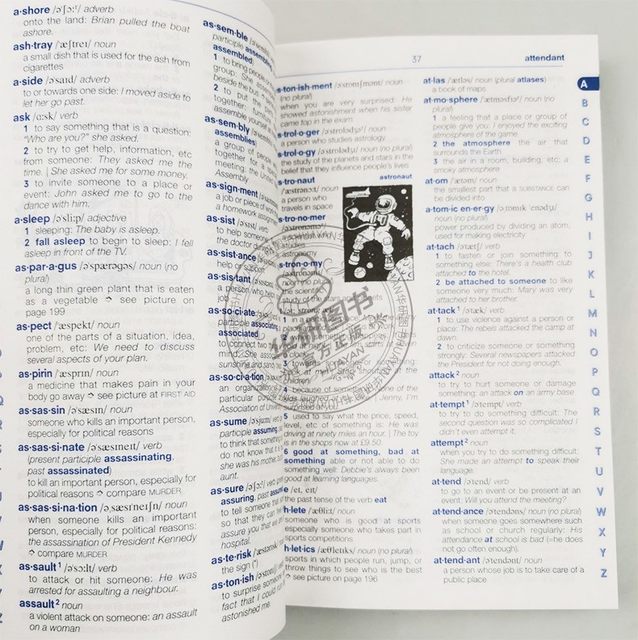 a·shore /əˈʃɔːʳ/ adverb
onto the land: Brian pulled the boat
ashore.
ash·tray /ˈæʃtreɪ/ noun
a small dish that is used for the ash from
cigarettes
a·side /əˈsaɪd/ adverb
to or towards one side: I moved aside to
let her go past.
ask /ɑːsk/ verb
1 to say something that is a question:
"Who are you?" she asked.
2 to try to get help, information, etc
from someone: They asked me the
time. | She asked me for some money.
3 to invite someone to a place or
event: John asked me to go to the
dance with him.
a·sleep /əˈsliːp/ adjective
1 sleeping: The baby is asleep.
2 fall asleep to begin to sleep: I fell
asleep in front of the TV.
as·par·a·gus /əˈspærəgəs/ noun (no
plural)
a long thin green plant that is eaten
as a vegetable see picture on
page 199
as·pect /ˈæspekt/ noun
one of the parts of a situation, idea,
problem, etc: We need to discuss
several aspects of your plan.
as·pirin /ˈæsprɪn/ noun
a medicine that makes pain in your
body go away see picture at FIRST AID
as·sas·sin /əˈsæsɪn/ noun
someone who kills an important person,
especially for political reasons
as·sas·si·nate /əˈsæsɪneɪt/ verb
(present participle assassinating,
past assassinated)
to kill an important person, especially for
political reasons compare MURDER
as·sas·si·na·tion /əˌsæsɪˈneɪʃn/ noun
when someone kills an important
person, especially for political reasons:
the assassination of President Kennedy
compare MURDER
as·sault¹ /əˈsɔːlt/ verb
to attack or hit someone: He was
arrested for assaulting a neighbour.
assault² noun
a violent attack on someone: an assault
on a woman
as·sem·ble
participle
assembled
1 to bring people
group: She
beside the bus
2 to put the
together:
assemble your
as·sem·bly
assemblies)
a group of
together for
meeting: the United
Assembly
as·sign·ment
a job or piece of
a homework
as·sist
to help someone
the doctor
as·sist·ance
help or
as·sis·tant
a person who
job
as·so·ci·ate
participle associating,
associated
connect two
as·so·ci·a·tion
an organization
particular
Association of
as·sume
participle assuming,
to think that
do not know
she was his mother
aunt.
as·sure
assuring, past
to tell someone
so that they
assure you that
hospital.
as·te·risk
the sign (*)
as·ton·ish
to surprise someone
fact that I could
astonished me.
37 attendant
s·ton·ish·ment /əˈstɒnɪʃmənt/ noun
(no plural)
when you are very surprised: He
showed astonishment when his sister
came top in the exam.
s·trol·o·ger /əˈstrɒlədʒəʳ/ noun
a person who studies astrology
s·trol·o·gy /əˈstrɒlədʒi/ noun (no plural)
the study of the planets and stars in the
belief that they influence people's lives
s·tro·naut
noun
a person who
travels in space
astronaut
s·tro·no·mer
noun
a scientist who
s·tron·o·my
noun (no plural)
the scientific
华研图书
官方正版
HUAYAN
5 used to say what the price, speed,
level, etc of something is: He was
driving at ninety miles an hour. | The toy
is in the shops now at £9.50.
6 good at something, bad at
something able or not able to do
something well: Debbie's always been
good at learning languages.
/et, eɪt/
the past tense of the verb eat
h·lete /ˈæθliːt/ noun
someone who is good at sports
especially someone who takes part in
sports competitions
h·let·ics /æθˈletɪks/ noun (no plural)
sports in which people run, jump, or
throw things to see who is the best
see picture on page 196
at·las /ˈætləs/ noun (plural atlases)
a book of maps
at·mo·sphere /ˈætməsfɪəʳ/ noun (no
plural)
1 a feeling that a place or group of
people give you: I enjoyed the exciting
atmosphere of the game.
2 the atmosphere the air that
surrounds the Earth
3 the air in a room, building, etc: a
smoky atmosphere
at·om /ˈætəm/ noun
the smallest part that a SUBSTANCE can
be divided into
a·tom·ic en·er·gy /əˌtɒmɪk ˈenədʒi/
noun (no plural)
power produced by dividing an atom,
used for making electricity
at·tach /əˈtætʃ/ verb
1 to fasten or join something to
something else: There's a health club
attached to the hotel.
2 be attached to someone to like
someone very much: Mary was very
attached to her brother.
at·tack¹ /əˈtæk/ verb
1 to use violence against a person or
place: The rebels attacked the camp at
dawn.
2 to criticize someone or something
strongly: Several newspapers attacked
the President for not doing enough.
attack² noun
to try to hurt someone or damage
something: an attack on an army base
at·tempt¹ /əˈtempt/ verb
to try to do something difficult: The
second question was so complicated I
didn't even attempt it.
attempt² noun
when you try to do something difficult:
She made an attempt to speak their
language.
at·tend /əˈtend/ verb
to go to an event or be present at an
event: Will you attend the meeting?
at·tend·ance /əˈtendəns/ noun
when someone goes somewhere such
as school or church regularly: His
attendance at school is bad (=he does
not go often enough).
at·tend·ant /əˈtendənt/ noun
a person whose job is to take care of a
public place
A
B
C
D
E
F
G
H
I
J
K
L
M
N
O
P
Q
R
S
T
U
V
W
X
Y
Z